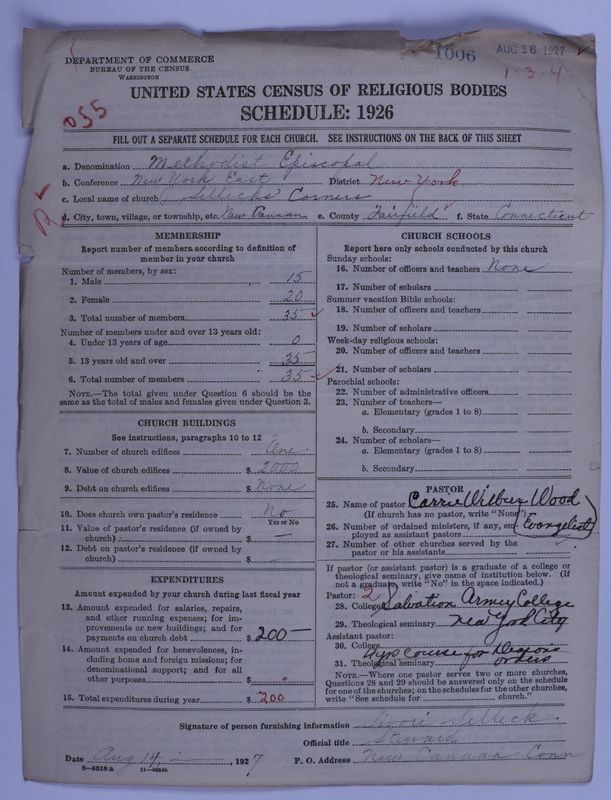 DEPARTMENT OF COMMERCE
BUREAU OF THE CENSUS
WASHINGTON
1096
AUG 16 1927
1-3-4
UNITED STATES CENSUS OF RELIGIOUS BODIES
SCHEDULE: 1926
055
FILL OUT A SEPARATE SCHEDULE FOR EACH CHURCH. SEE INSTRUCTIONS ON THE BACK OF THIS SHEET
a. Denomination Methodist Episcopal
b. Conference New York East District New York
c. Local name of church Sellecks Corners
d. City, town, village, or township, etc. New Canaan e. County Fairfield f. State Connecticut
R
MEMBERSHIP
Report number of members according to definition of
member in your church
Number of members, by sex:
1. Male 15
2. Female 20
3. Total number of members 35
Number of members under and over 13 years old:
4. Under 13 years of age 0
5. 13 years old and over 35
6. Total number of members 35
NOTE.—The total given under Question 6 should be the
same as the total of males and females given under Question 3.
CHURCH BUILDINGS
See instructions, paragraphs 10 to 12
7. Number of church edifices One
8. Value of church edifices $ 2000
9. Debt on church edifices $ None
10. Does church own pastor's residence? No
Yes or No
11. Value of pastor's residence (if owned by
church) $ —
12. Debt on pastor's residence (if owned by
church) $
EXPENDITURES
Amount expended by your church during last fiscal year
13. Amount expended for salaries, repairs,
and other running expenses; for im-
provements or new buildings; and for
payments on church debt $ 200—
14. Amount expended for benevolences, in-
cluding home and foreign missions; for
denominational support; and for all
other purposes $
15. Total expenditures during year $ 200
CHURCH SCHOOLS
Report here only schools conducted by this church
Sunday schools:
16. Number of officers and teachers None
17. Number of scholars
Summer vacation Bible schools:
18. Number of officers and teachers
19. Number of scholars
Week-day religious schools:
20. Number of officers and teachers
21. Number of scholars
Parochial schools:
22. Number of administrative officers
23. Number of teachers—
a. Elementary (grades 1 to 8)
b. Secondary
24. Number of scholars—
a. Elementary (grades 1 to 8)
b. Secondary
PASTOR
25. Name of pastor Carrie Wilbur Wood
(If church has no pastor, write "None")
26. Number of ordained ministers, if any, em-
ployed as assistant pastors
(Evangelist)
27. Number of other churches served by the
pastor or his assistants
If pastor (or assistant pastor) is a graduate of a college or
theological seminary, give name of institution below. (If
not a graduate, write "No" in the space indicated.)
Pastor: 2
28. College Salvation Army College
29. Theological seminary New York City
Assistant pastor:
30. College
31. Theological seminary
Course for
orders
NOTE.—Where one pastor serves two or more churches,
Questions 28 and 29 should be answered only on the schedule
for one of the churches; on the schedules for the other churches,
write "See schedule for church."
Signature of person furnishing information Selleck
Official title Steward
Date Aug 14, 1927 P. O. Address New Canaan Conn
8—5518a